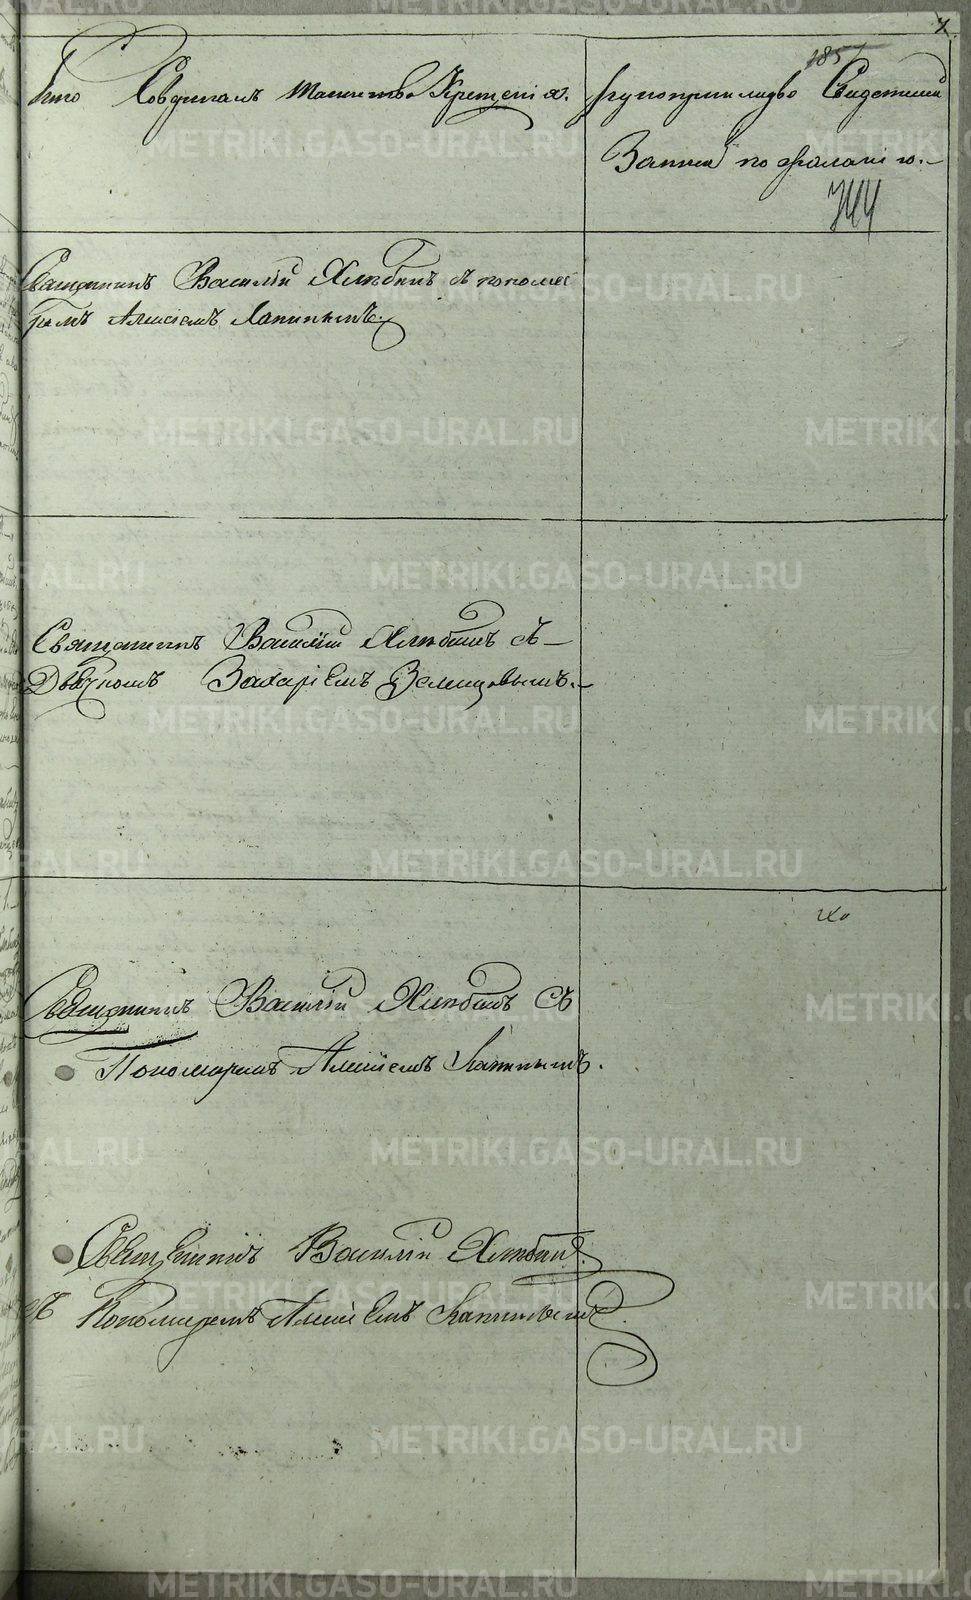 7
185
Кто Совершалъ таинство Крещенія.
Рукоприкладство Свидетелей
Записи по желанію.
744
Священникъ Василій Хлебинъ съ понома
ремъ Алексiемъ
Священникъ Василій Хлебинъ съ
Дьячкомъ Захаріемъ Земляновымъ.
Священникъ Василій Хлебинъ Съ
Пономаремъ Алексiемъ
Священникъ Василій Хлебинъ
съ Пономаремъ Алексiемъ
METRIKI.GASO-URAL.RU